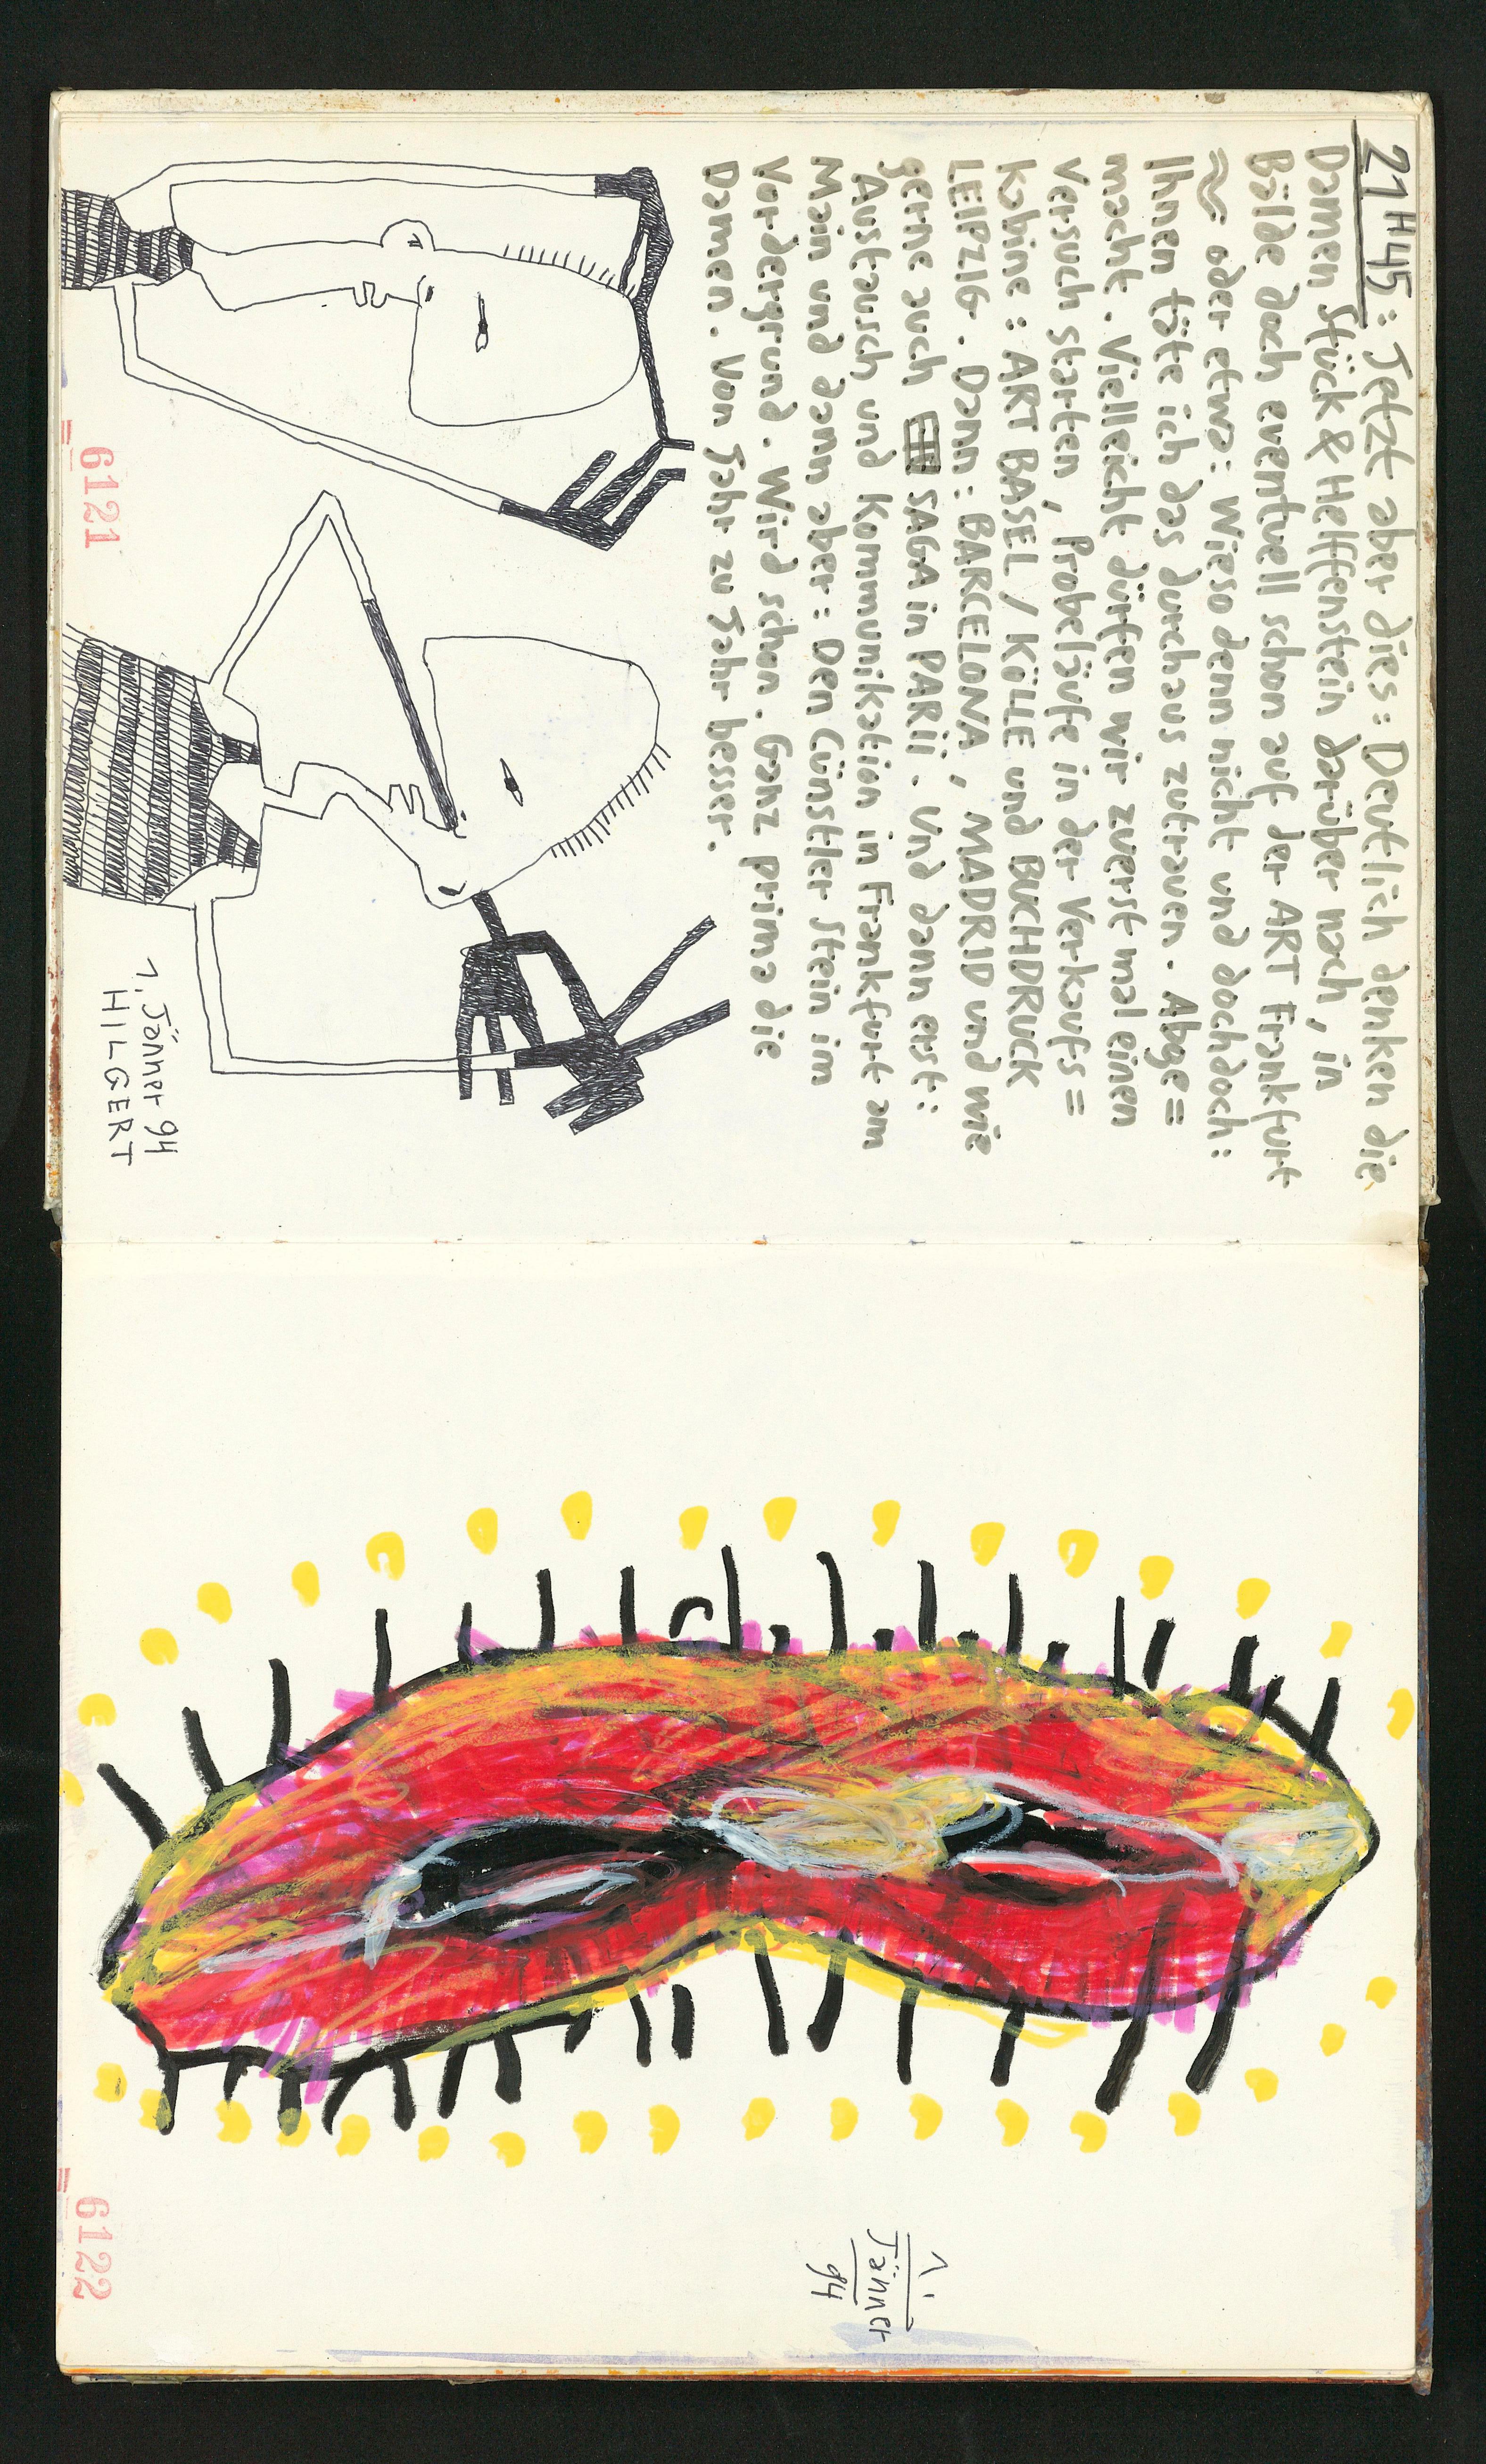 21H45: Jetzt aber dies: Deutlich denken die
Damen Stück & Helffenstein darüber nach, in
Bälde doch eventuell schon auf der ART Frankfurt
oder etwa: Wieso denn nicht und dochdoch:
Ihnen täte ich das durchaus zutrauen. Abge=
macht. Vielleicht dürfen wir zuerst mal einen
Versuch starten, Probeläufe in der Verkaufs=
kabine: ART BASEL / KÖLLE und BUCHDRUCK
LEIPZIG. Dann: BARCELONA, MADRID und wie
gerne auch SAGA in PARii. Und dann erst:
Austausch und Kommunikation in Frankfurt am
Main und dann aber: Den Cünstler Stein im
Vordergrund. Wird schon. Ganz prima die
Damen. Von Jahr zu Jahr besser.
1. Jänner 94
HILGERT
6121
1.
Jänner
94
6122